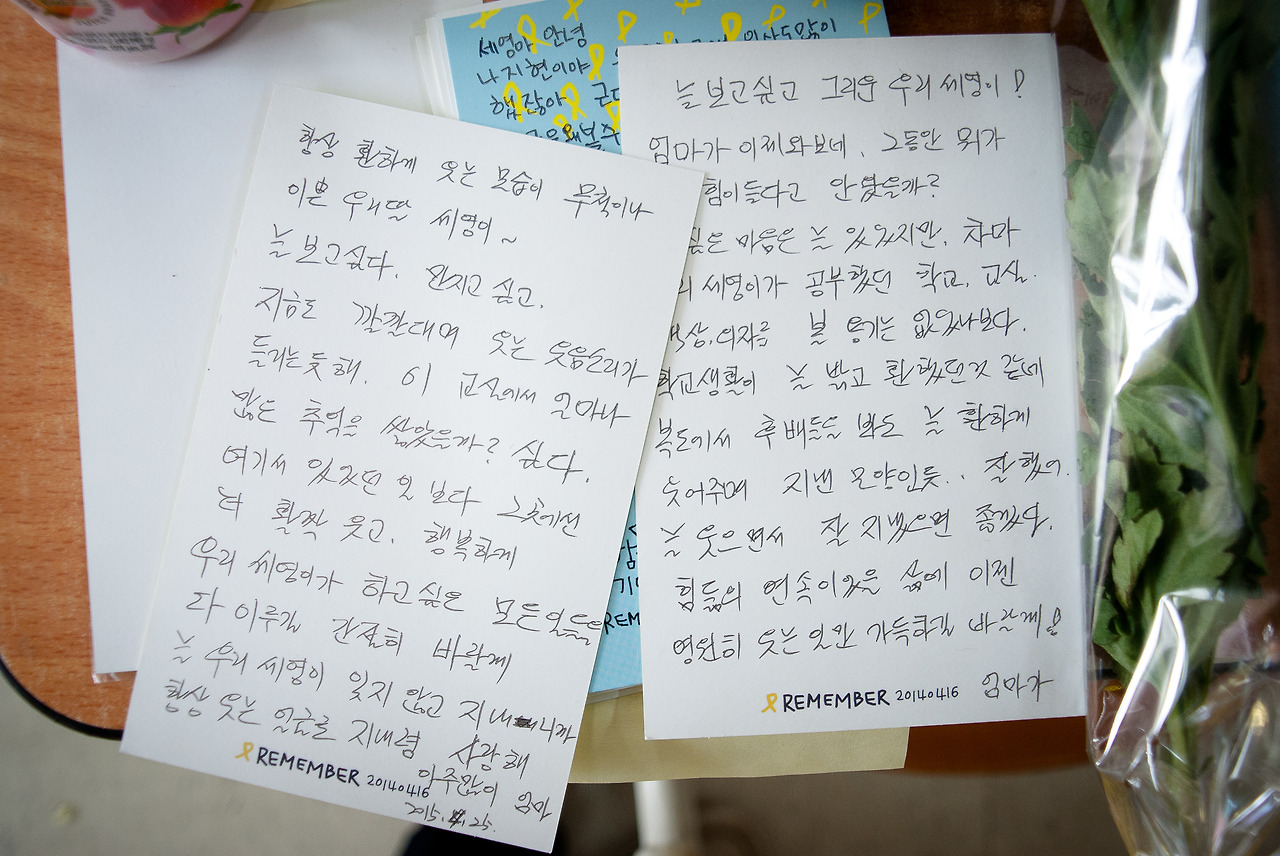 항상 환하게 웃는 모습이 무척이나
이쁜 우리딸 세영이~
늘 보고싶다. 만지고 싶고.
지금도 깔깔대며 웃는 웃음소리가
들리는듯해. 이 교실에서 얼마나
많은 추억을 쌓았을까? 싶다.
여기서 있었던 일 보다 그곳에선
더 활짝 웃고, 행복하게
우리 세영이가 하고싶은 모든일들을
다 이루길 간절히 바랄게
늘 우리 세영이 잊지 않고 지내니까
항상 웃는 얼굴로 지내렴 사랑해
아주많이 엄마
REMEMBER 20140416
2015.4.25.
세영아 안녕
나 지현이야
인사도많이
했잖아
늘 보고싶고 그리운 우리 세영이!
엄마가 이제와보네. 그동안 뭐가
힘이들다고 안왔을까?
싶은 마음은 늘 있었지만, 차마
리 세영이가 공부했던 학교, 교실.
책상, 의자를 볼 용기는 없었나보다.
학교생활이 늘 밝고 환했던것 같네
복도에서 후배들을 봐도 늘 환하게
웃어주며 지낸 모양인듯.. 잘했어.
늘 웃으면서 잘 지냈으면 좋겠다.
힘듦의 연속이었을 삶에 이젠
영원히 웃는 일만 가득하길 바랄게
REMEMBER 20140416 엄마가
REM